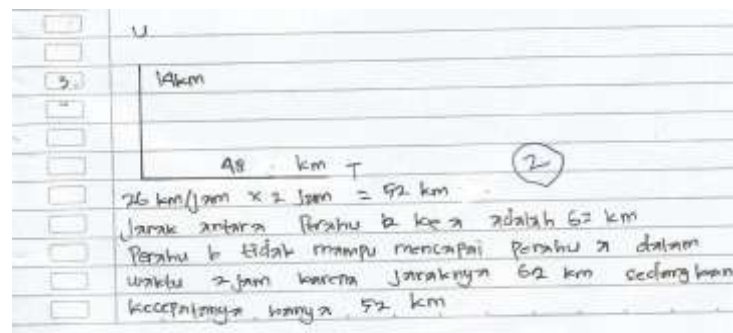 U
3. 14km
48 km T
2
26 km/jam x 2 jam = 52 km
Jarak antara Perahu b ke a adalah 62 km
Perahu b tidak mampu mencapai perahu a dalam
waktu 2 jam karena jaraknya 62 km sedangkan
kecepatannya hanya 52 km